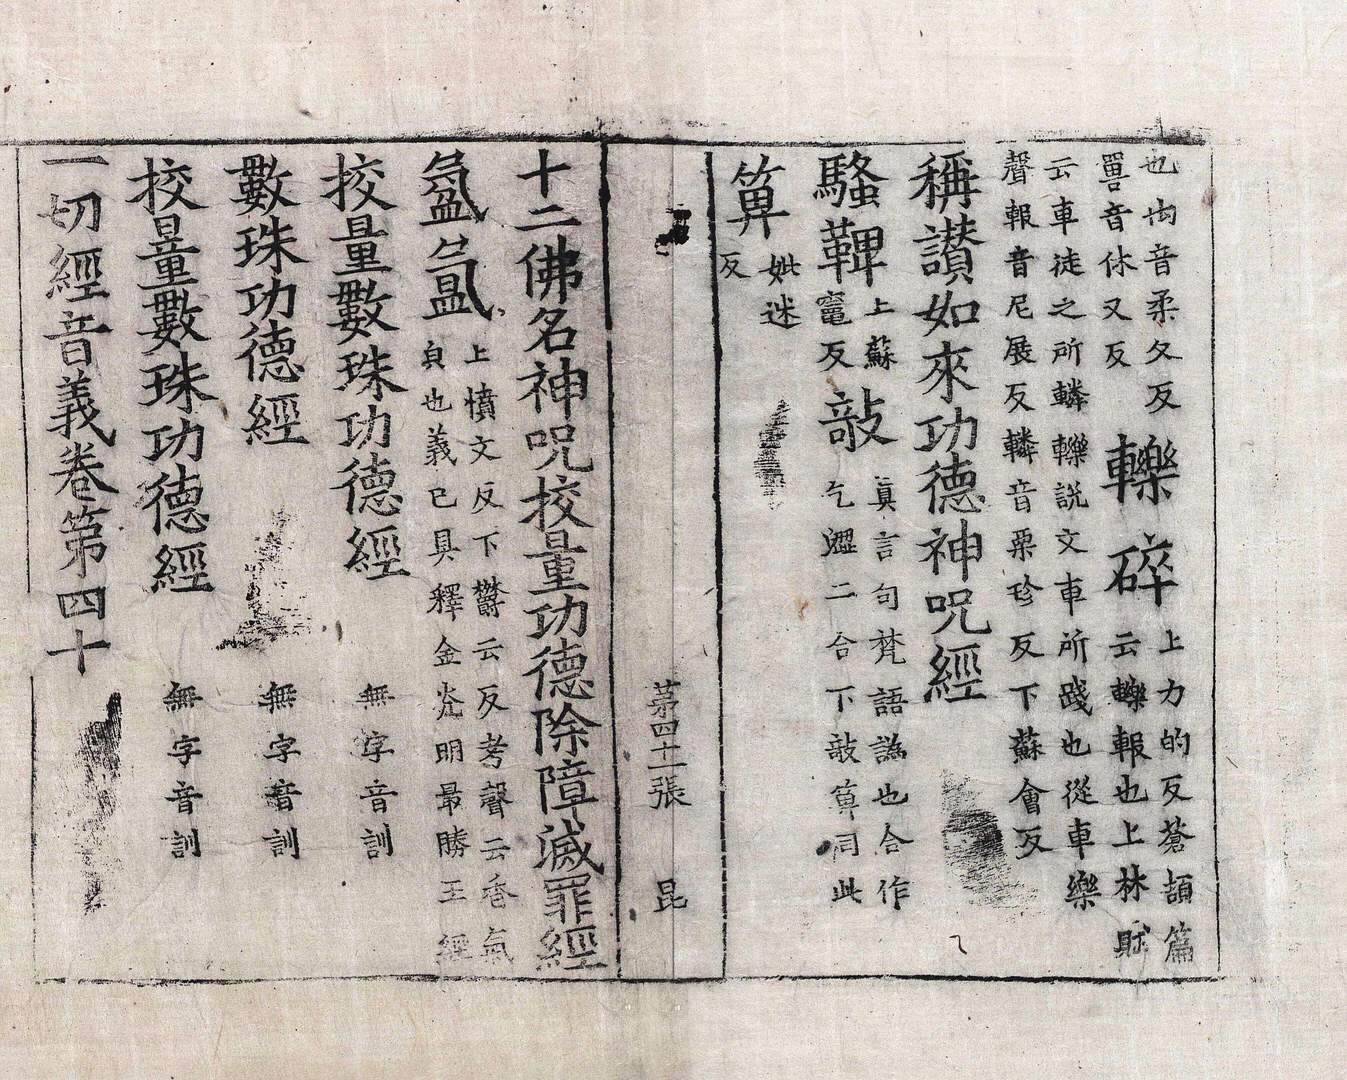 也禸音柔久反
嘼音休又反
轢碎
上力的反蒼頡篇
云轢報也上林賦
云車徒之所轔轢說文車所踐也從車樂
聲報音尼展反轔音栗珍反下蘇會反
稱讃如來功德神呪經
騷鞞
上蘇
竈反
敲
真言句梵語譌也合作
乞澀二合下敲箄同此
箄
妣迷
反
苐四十二張
昆
十二佛名神呪校量功德除障滅罪經
氛氳
上憤文反下欝云反考聲云香氣
皃也義已具釋金光明最勝王經
校量數珠功德經
無字音訓
數珠功德經
無字音訓
校量數珠功德經
無字音訓
一切經音義卷第四十